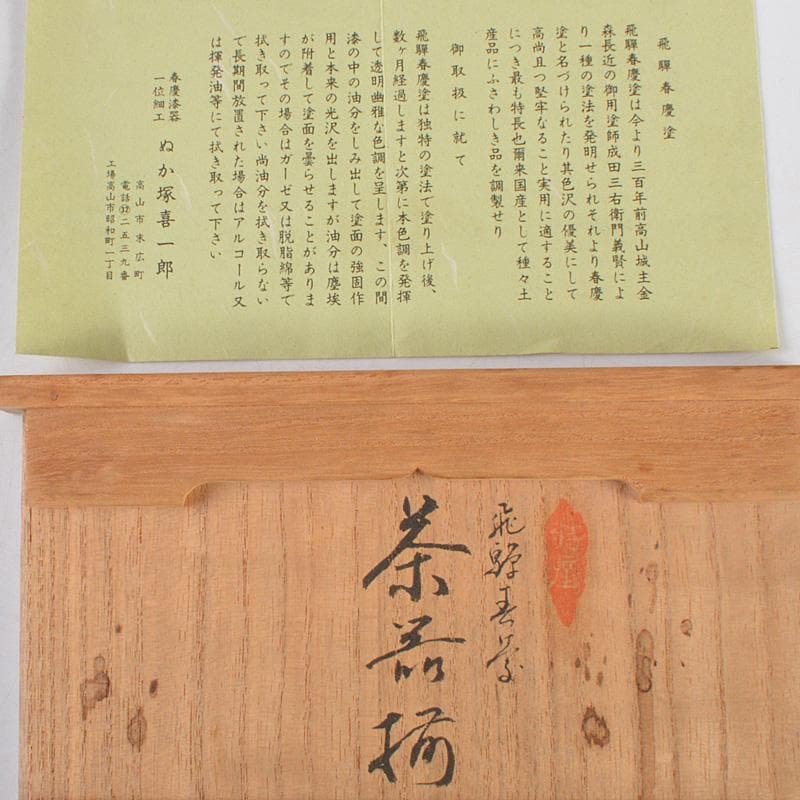 飛騨春慶塗
飛騨春慶塗は今より三百年前高山城主金
森長近の御用塗師成田三右衛門義賢によ
り一種の塗法を発明せられそれより春慶
塗と名づけられたり其色沢の優美にして
高尚且つ堅牢なること実用に適すること
につき最も特長也爾来国産として種々土
産品にふさわしき品を調製せり
御取扱に就て
飛騨春慶塗は独特の塗法で塗り上げ後、
数ヶ月経過しますと次第に本色調を発揮
して透明幽雅な色調を呈します、この間
漆の中の油分をしみ出して塗面の強固作
用と本来の光沢を出しますが油分は塵埃
が附着して塗面を曇らせることがありま
すのでその場合はガーゼ又は脱脂綿等で
拭き取って下さい尚油分を拭き取らない
で長期間放置された場合はアルコール又
は揮発油等にて拭き取って下さい
春慶漆器
一位細工
ぬか塚喜一郎
高山市末広町
電話㉜二五三九番
工場高山市昭和町一丁目
飛騨春慶
茶器揃